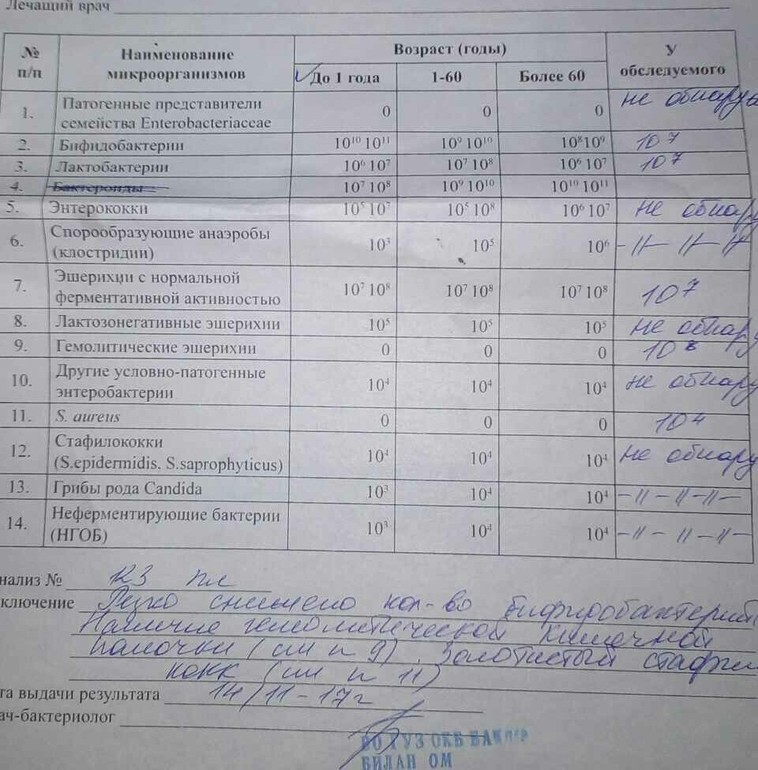 Лечащий врач
№ п/п Наименование микроорганизмов Возраст (годы) У обследуемого
До 1 года 1-60 Более 60
1. Патогенные представители семейства Enterobacteriaceae 0 0 0 не обнаруж
2. Бифидобактерии 10¹⁰ 10¹¹ 10⁹ 10¹⁰ 10⁸10⁹ 10⁷
3. Лактобактерии 10⁶ 10⁷ 10⁷ 10⁸ 10⁶ 10⁷ 10⁷
4. Бактероиды 10⁷ 10⁸ 10⁹ 10¹⁰ 10¹⁰ 10¹¹
5. Энтерококки 10⁵ 10⁷ 10⁵ 10⁸ 10⁶ 10⁷ не обнару
6. Спорообразующие анаэробы (клостридии) 10³ 10⁵ 10⁶ -||- ||- ||
7. Эшерихии с нормальной ферментативной активностью 10⁷ 10⁸ 10⁷ 10⁸ 10⁷ 10⁸ 10⁷
8. Лактозонегативные эшерихии 10⁵ 10⁵ 10⁵ не обнару
9. Гемолитические эшерихии 0 0 0 10
10. Другие условно-патогенные энтеробактерии 10⁴ 10⁴ 10⁴ не обнару
11. S. aureus 0 0 0 10⁴
12. Стафилококки (S.epidermidis, S.saprophyticus) 10⁴ 10⁴ 10⁴ не обнару
13. Грибы рода Candida 10³ 10⁴ 10⁴ -||-||-||-
14. Неферментирующие бактерии (НГОБ) 10³ 10⁴ 10⁴ -||- ||-||-
нализ № 123 пл
ключение Резко снижено кол-во бифидобактерий
Наличие гемолитической кишечной
палочки (см п 9). Золотистый стафи
кокк (см п 11)
та выдачи результата 14/11-17г
ач-бактериолог
ГУЗ ОКБ
БИЛАН ОМ